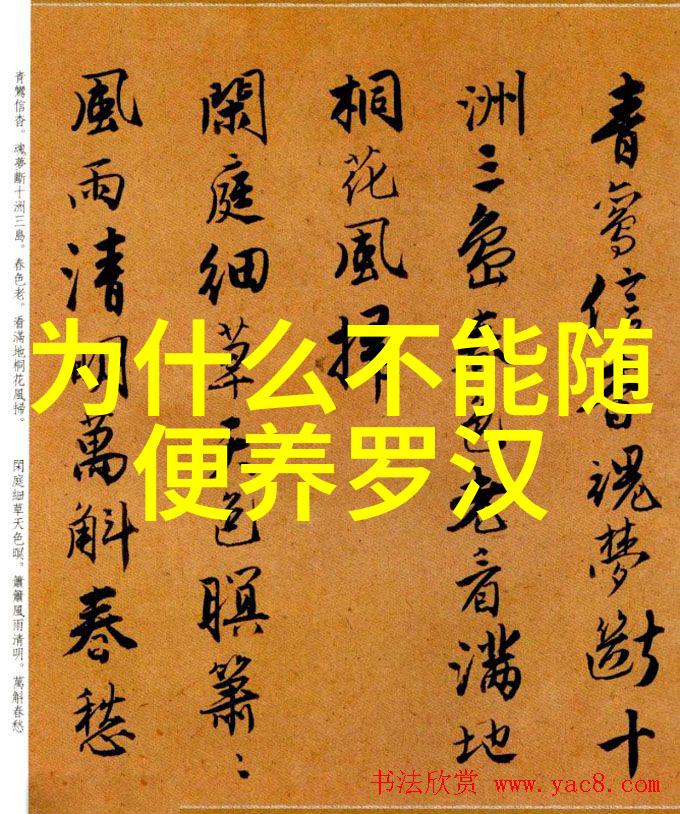 为什么不能随
便养罗汉
青鸞信杳魂夢斷十
洲三島春色老看滿地
桐花風掃
閑庭細草天色暝簫〻
風雨清明萬斛春愁
青鸞信杳。魂夢斷十洲三島。春色老。看滿地桐花風掃。 閑庭細草天色暝。簫簫風雨清明。萬斛春愁
书法欣赏 www.yac8.com